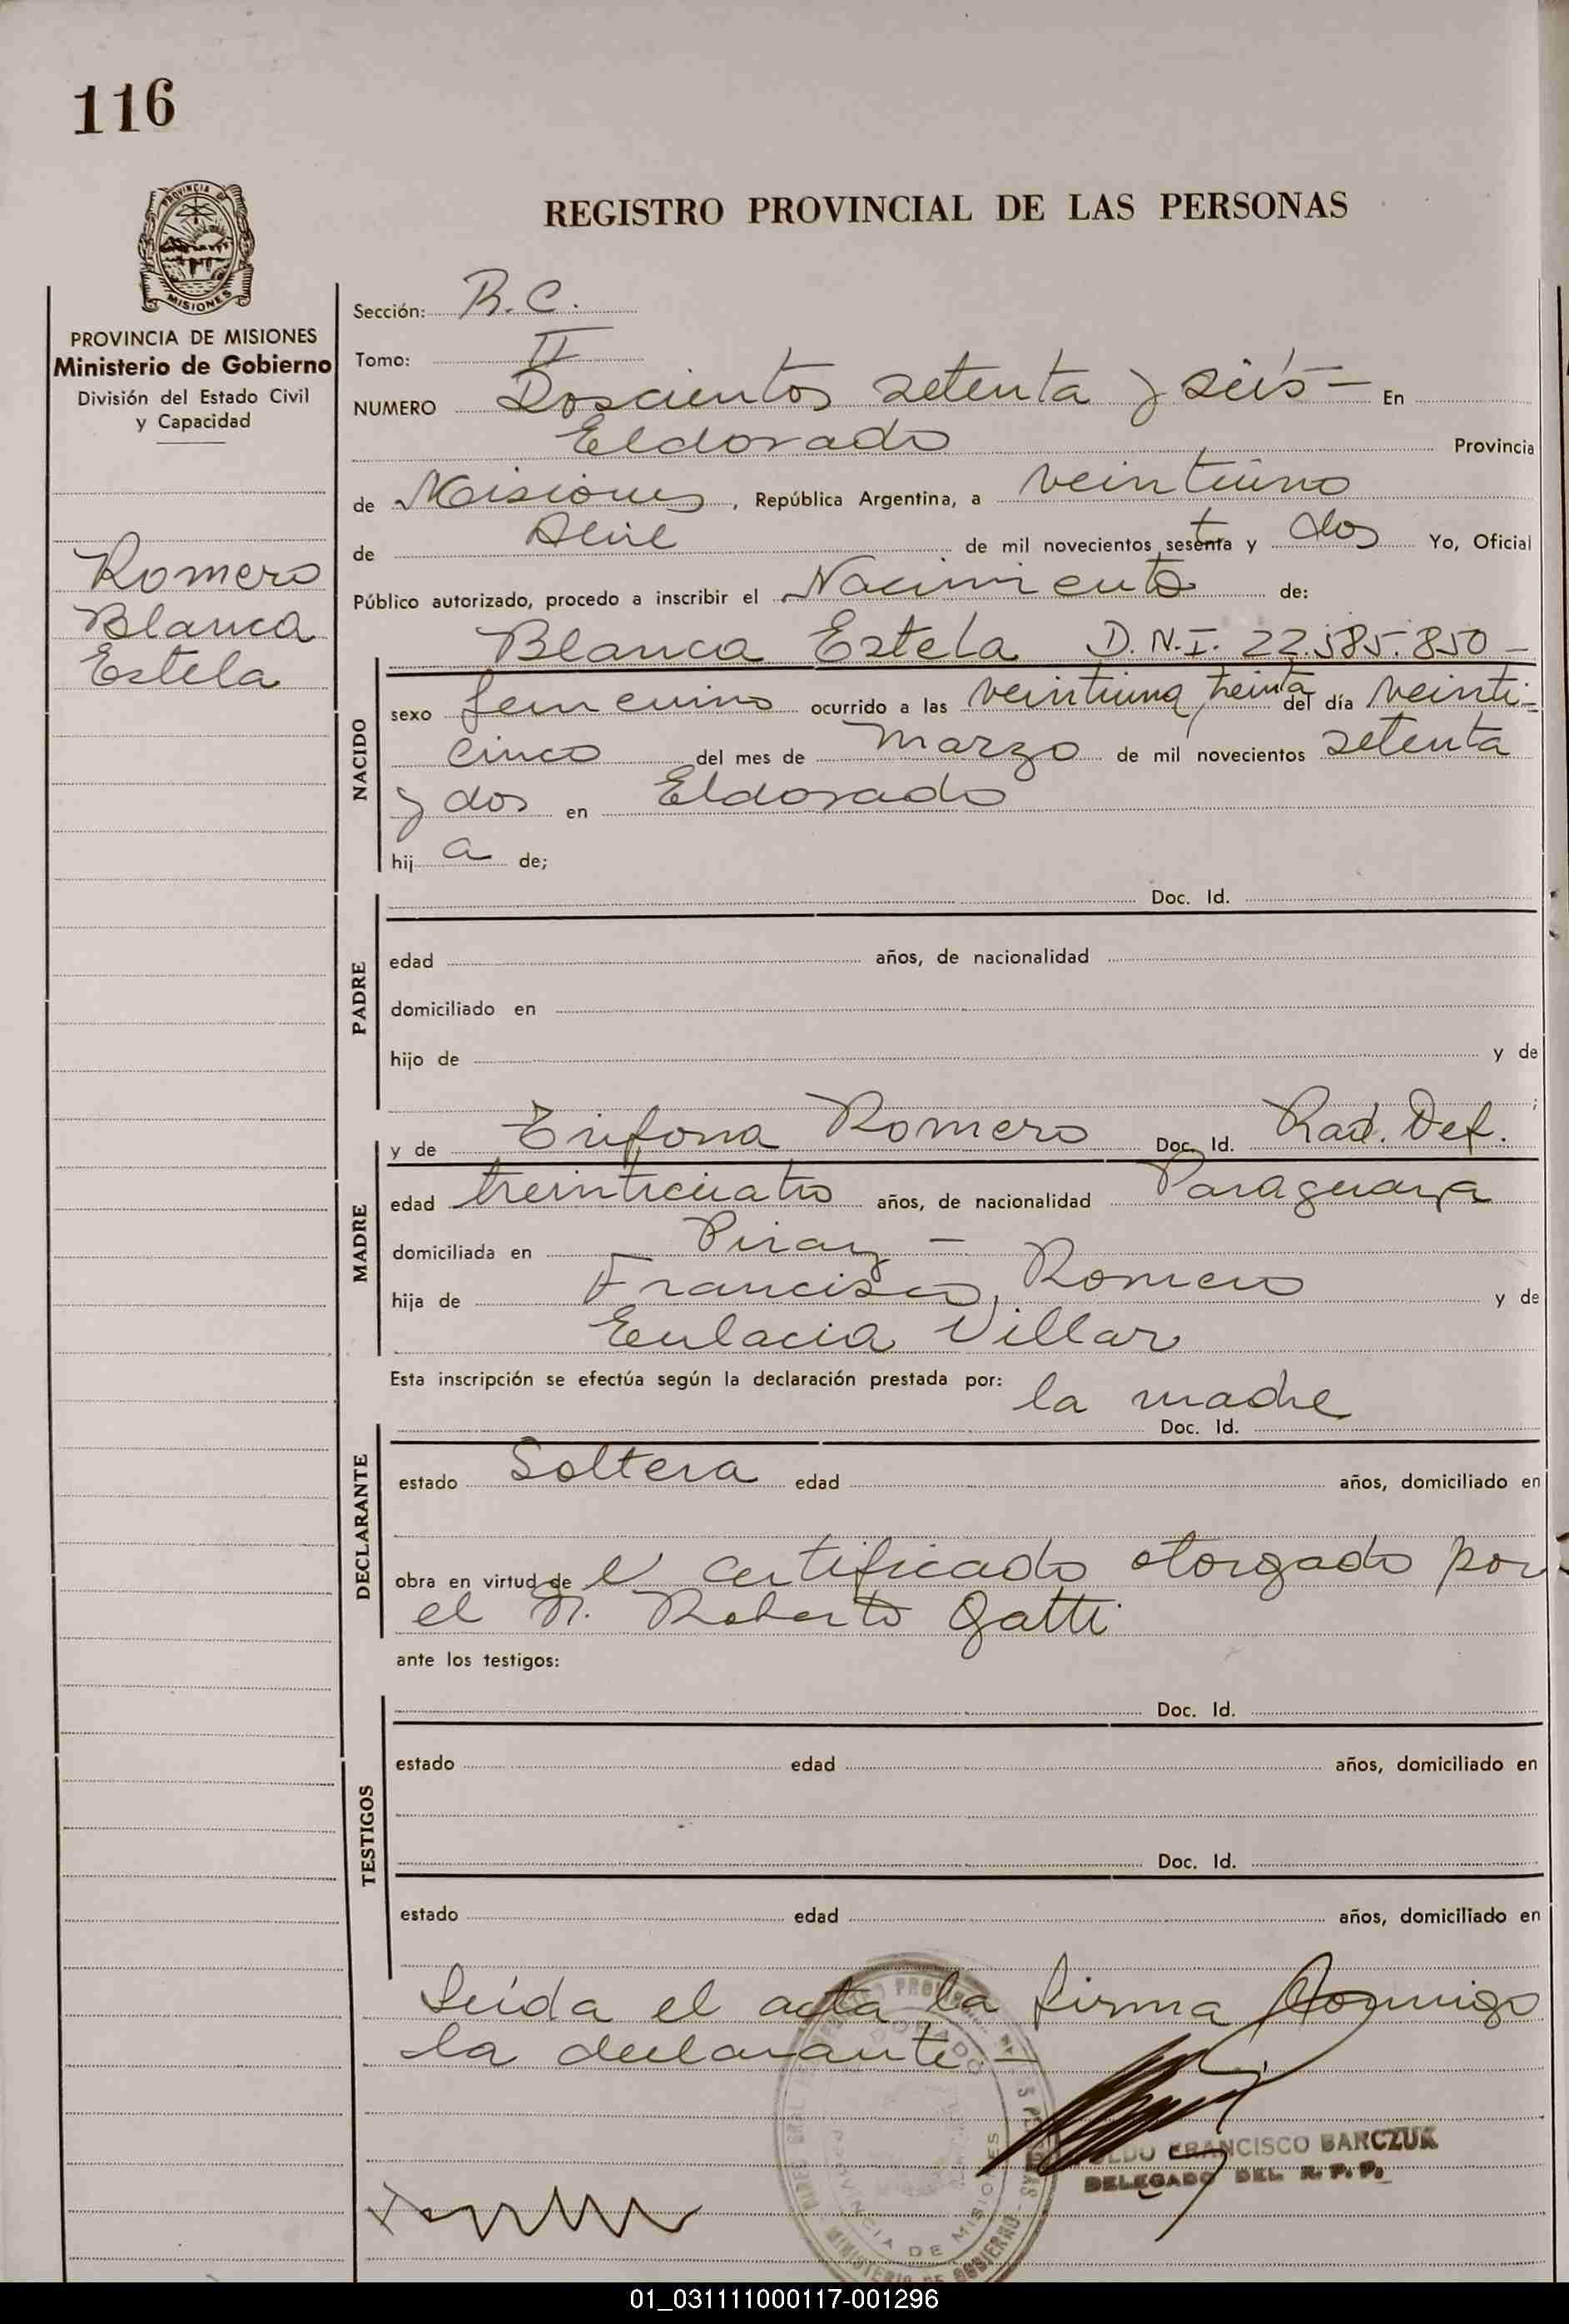 116
PROVINCIA DE MISIONES
PROVINCIA DE MISIONES
Ministerio de Gobierno
División del Estado Civil
y Capacidad
Romero
Blanca
Estela
REGISTRO PROVINCIAL DE LAS PERSONAS
Sección: R.C.
Tomo: II
NUMERO Doscientos setenta y seis — En
Eldorado Provincia
de Misiones, República Argentina, a veintiuno
de Abril de mil novecientos setenta y dos Yo, Oficial
Público autorizado, procedo a inscribir el Nacimiento de:
Blanca Estela D.N.I. 22.585.850 —
NACIDO
sexo femenino ocurrido a las veintiuna, treinta del día veinti-
cinco del mes de marzo de mil novecientos setenta
y dos en Eldorado
hija de;
PADRE
Doc. Id.
edad años, de nacionalidad
domiciliado en
hijo de y de
;
MADRE
y de Trifona Romero Doc. Id. Rad. Def.
edad treinticuatro años, de nacionalidad Paraguaya
domiciliada en Piray —
hija de Francisco Romero y de
Eulacia Villar
Esta inscripción se efectúa según la declaración prestada por: la madre
DECLARANTE
Doc. Id.
estado Soltera edad años, domiciliado en
obra en virtud de el certificado otorgado por
el Dr. Roberto Gatti
ante los testigos:
TESTIGOS
Doc. Id.
estado edad años, domiciliado en
Doc. Id.
estado edad años, domiciliado en
Leída el acta la firma conmigo
la declarante. —
FRANCISCO BARCZUK
DELEGADO DEL R. P. P.
PROVINCIA DE MISIONES
MINISTERIO DE GOBIERNO
01_031111000117-001296